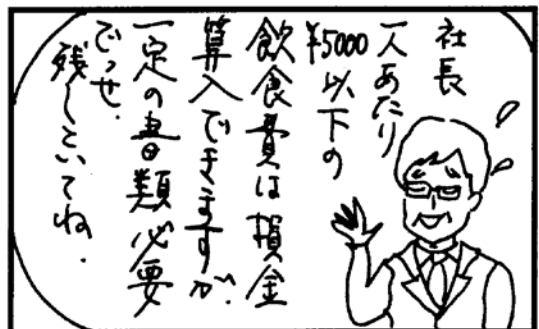 社長
一人あたり
¥5000以下の
飲食費は損金
算入できますが、
一定の書類必要
でっせ.
残しといてね.